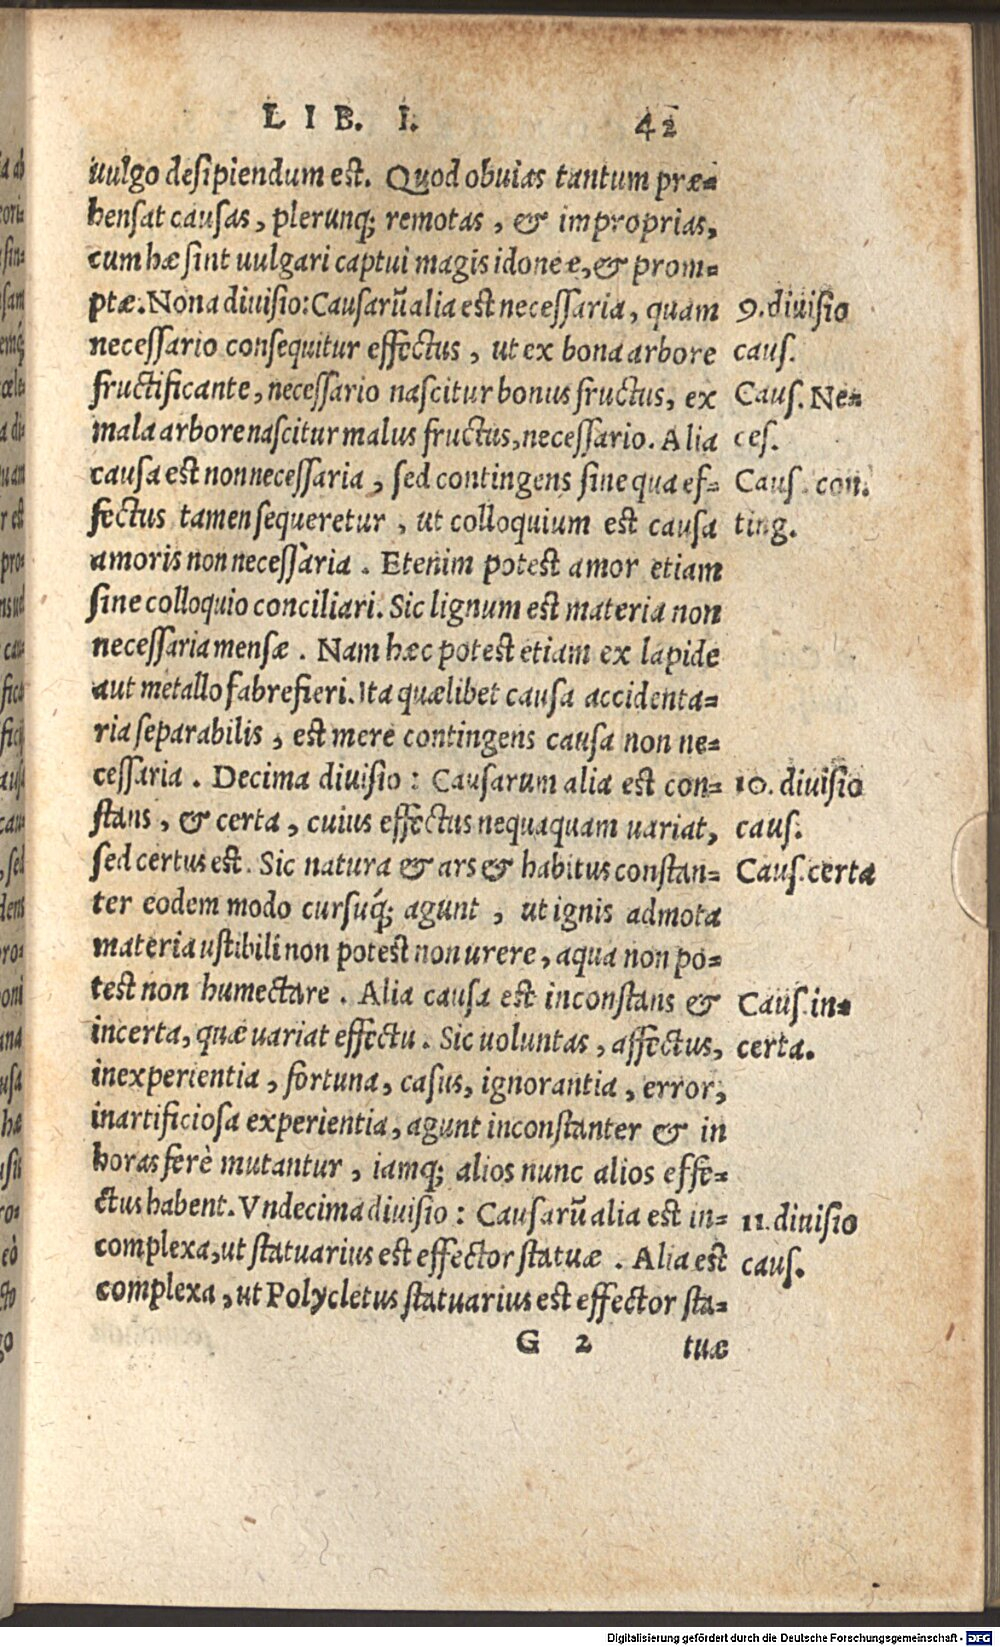 LIB. I. 42
uulgo desipiendum est. Quod obuias tantum præ-
hensat causas, plerunq; remotas, & improprias,
cum hæ sint uulgari captui magis idoneæ, & prom-
ptæ. Nona diuisio: Causarũ alia est necessaria, quam 9. diuisio
necessario consequitur effectus, ut ex bona arbore caus.
fructificante, necessario nascitur bonus fructus, ex Caus. Ne-
mala arbore nascitur malus fructus, necessario. Alia ces.
causa est non necessaria, sed contingens sine qua ef- Caus. con.
fectus tamen sequeretur, ut colloquium est causa ting.
amoris non necessaria. Etenim potest amor etiam
sine colloquio conciliari. Sic lignum est materia non
necessaria mensæ. Nam hæc potest etiam ex lapide
aut metallo fabrefieri. Ita quælibet causa accidenta-
ria separabilis, est mere contingens causa non ne-
cessaria. Decima diuisio: Causarum alia est con- 10. diuisio
stans, & certa, cuius effectus nequaquam uariat, caus.
sed certus est. Sic natura & ars & habitus constan- Caus. certa
ter eodem modo cursuq́; agunt, ut ignis admota
materia ustibili non potest non urere, aqua non po-
test non humectare. Alia causa est inconstans & Caus. in-
incerta, quæ uariat effectu. Sic uoluntas, affectus, certa.
inexperientia, fortuna, casus, ignorantia, error,
inartificiosa experientia, agunt inconstanter & in
horas ferè mutantur, iamq; alios nunc alios effe-
ctus habent. Vndecima diuisio: Causarũ alia est in- 11. diuisio
complexa, ut statuarius est effector statuæ. Alia est caus.
complexa, ut Polycletus statuarius est effector sta-
G 2 tuæ
Digitalisierung gefördert durch die Deutsche Forschungsgemeinschaft - DFG